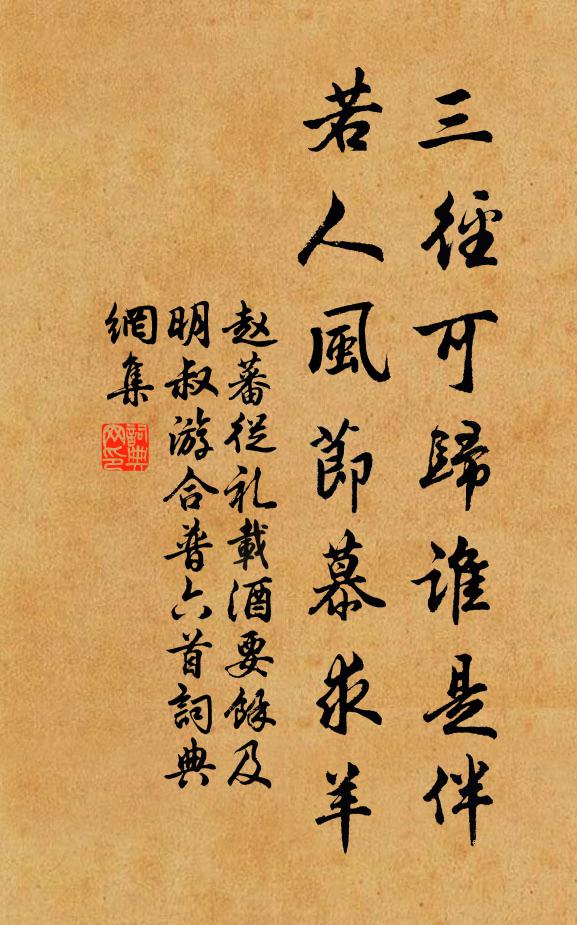 三徑可歸誰是伴
若人風節慕求羊
赵蕃從礼載酒要餘及
明叔游合普六首詞典
網集
詞典
网印